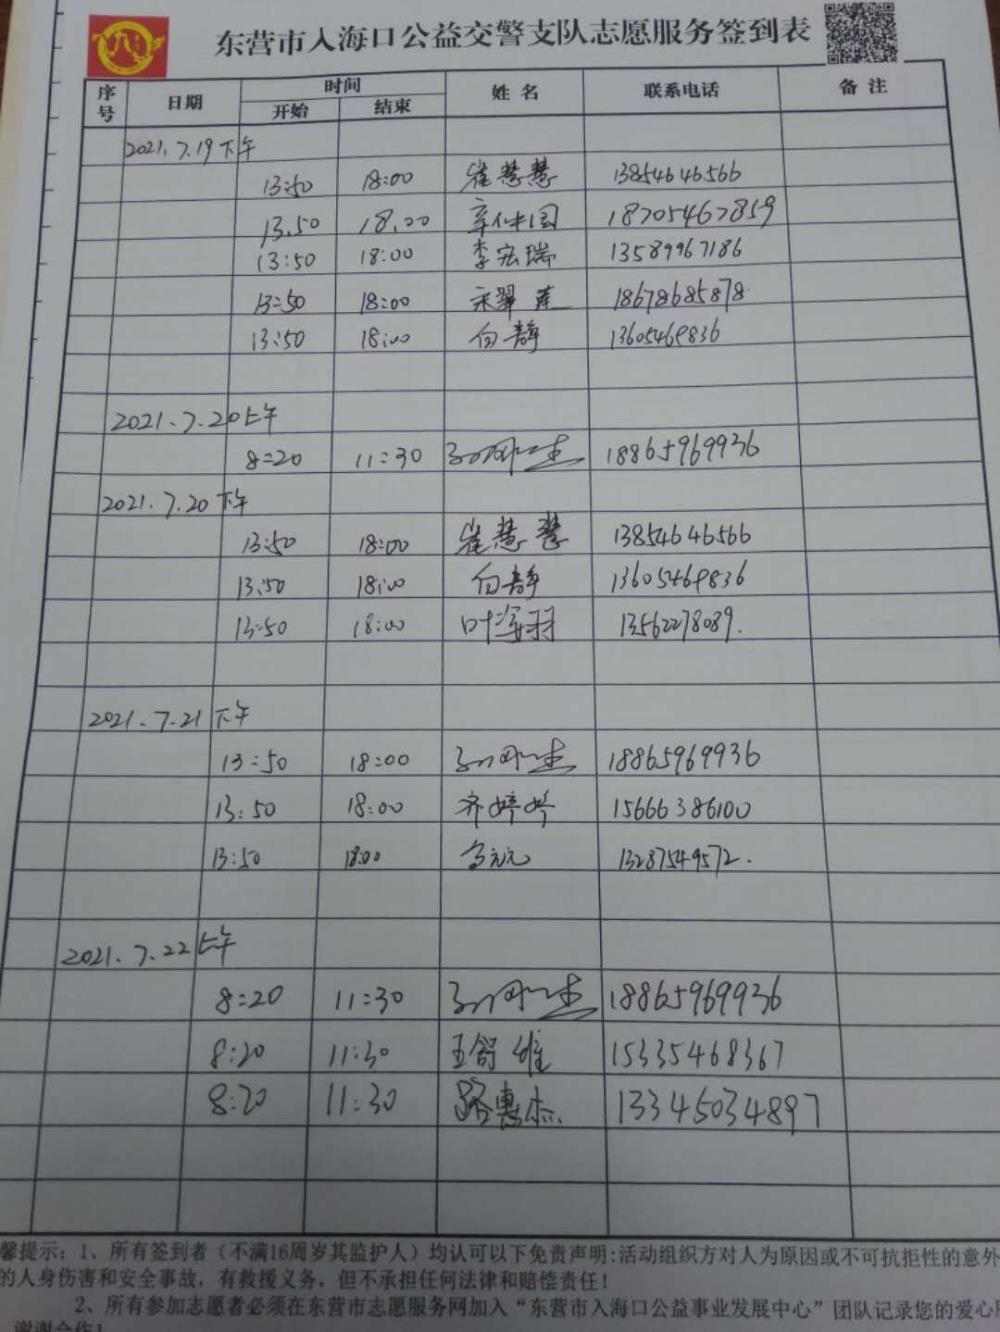 东营市入海口公益交警支队志愿服务签到表
序号 日期 时间 开始 结束 姓名 联系电话 备注
2021.7.19下午
13:50 18:00 崔慧慧 13854646566
13.50 18.00 辛仲国 18705467859
13:50 18:00 李宏瑞 13589967186
13:50 18:00 宋翠莲 18678685878
13:50 18:00 白静 13605469836
2021.7.20上午
8:20 11:30 18865969936
2021.7.20下午
13:50 18:00 崔慧慧 13854646566
13:50 18:00 白静 13605469836
13:50 18:00 叶海羽 13562278089.
2021.7.21下午
13:50 18:00 18865969936
13:50 18:00 齐婷婷 15666386100
13:50 18:00 13287549572.
2021.7.22上午
8:20 11:30 18865969936
8:20 11:30 王舒维 15335468367
8:20 11:30 路惠杰 13345034897
馨提示：1、所有签到者（不满16周岁其监护人）均认可以下免责声明:活动组织方对人为原因或不可抗拒性的意外
的人身伤害和安全事故，有救援义务，但不承担任何法律和赔偿责任！
2、所有参加志愿者必须在东营市志愿服务网加入“东营市入海口公益事业发展中心”团队记录您的爱心
谢谢合作！